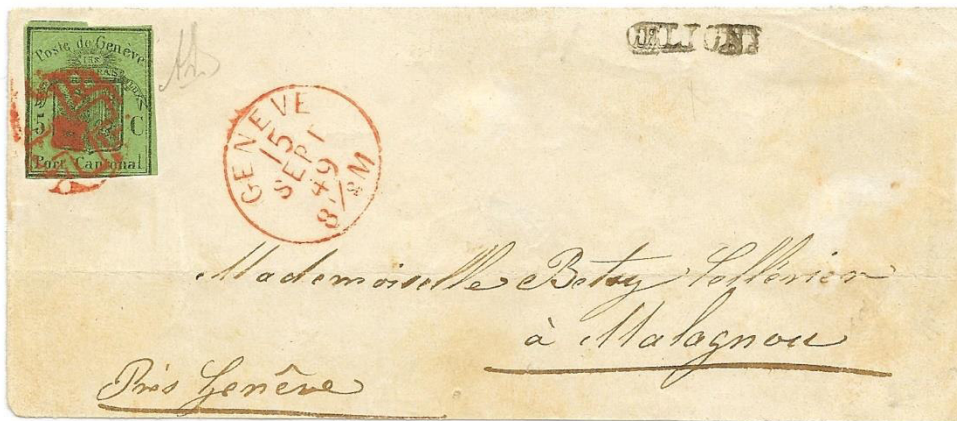 Poste de Genève
5 C
Port Cantonal
GENEVE
15
SEPT
49
8/2M
Mademoiselle Betsy
à Malagnou
Près Genève